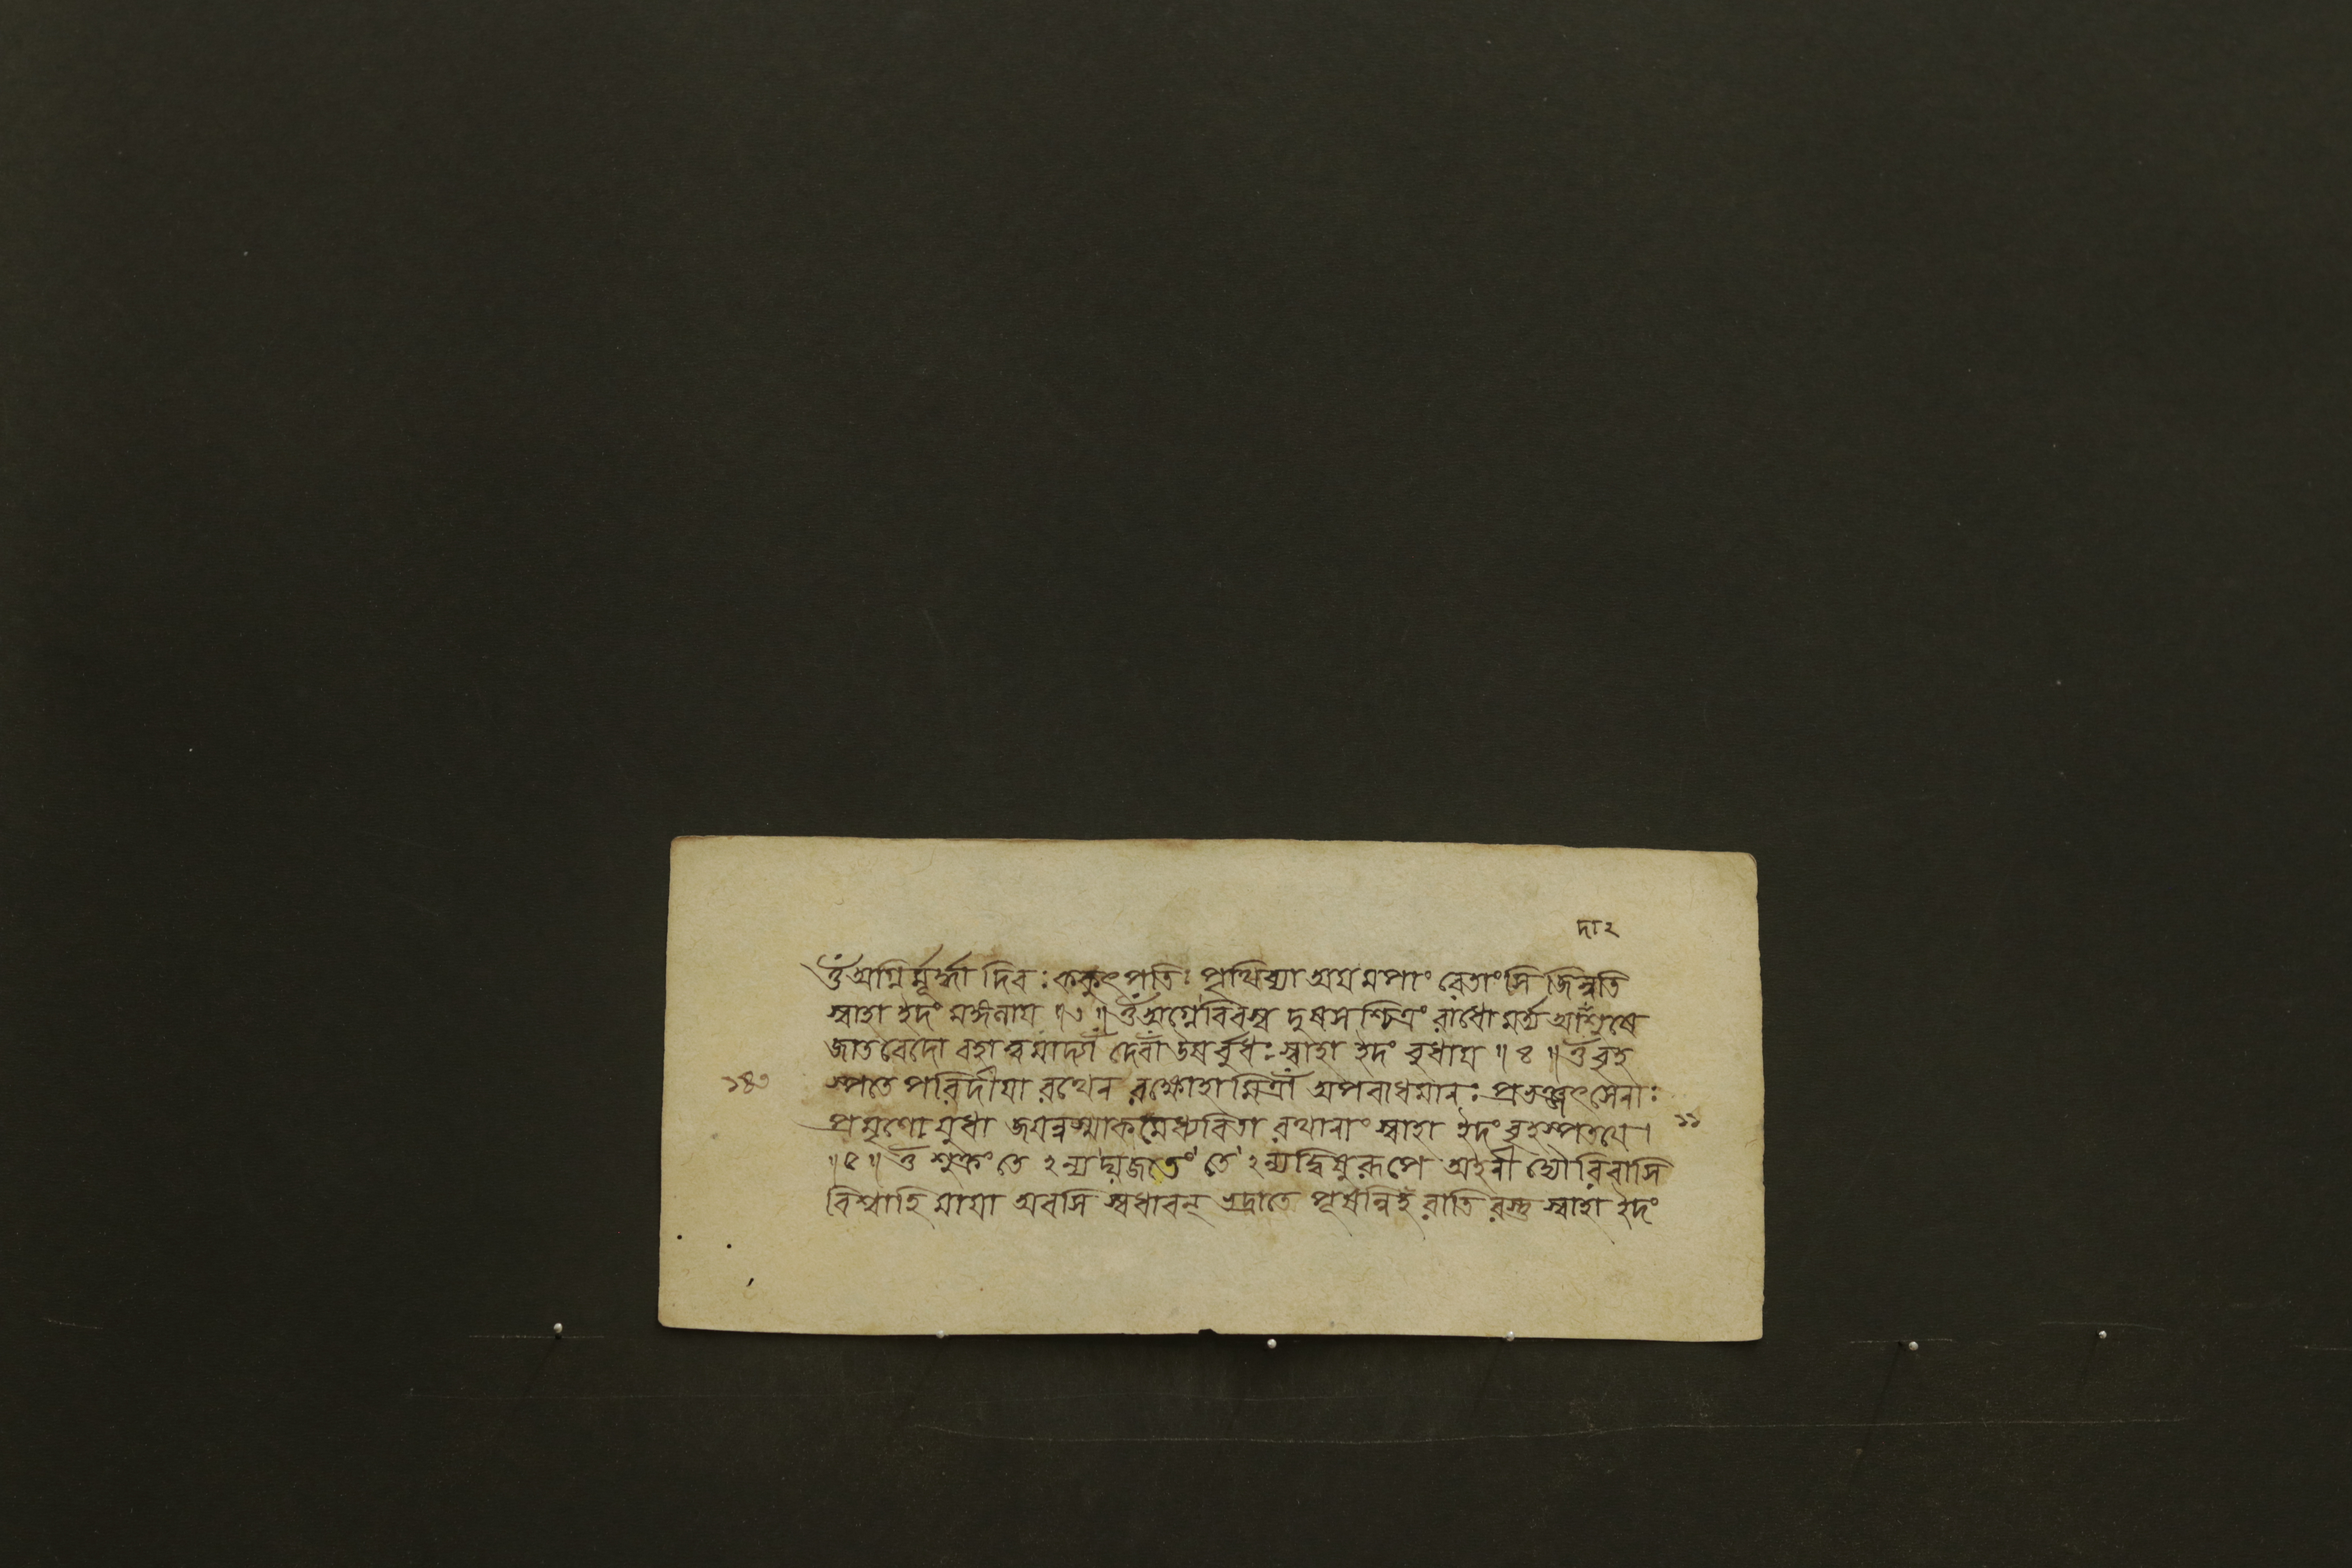 দা২
ওঁ অগ্নির্ম্মূর্দ্ধা দিবঃ ককুৎপতিঃ পৃথিব্যা অয়মপাং রেতাংসি জিন্বতি
স্বাহা ইদং মঙ্গলায় ॥৩॥ ওঁ অগ্নে বিবস্ব দুষসশ্চিত্রং রাধো মর্ত্ত্য আঁশুষে
জাতবেদো বহাত্বমাদ্যাঁ দেবাঁ উষর্বুধঃ স্বাহা ইদং বুধায় ॥৪॥ ওঁ বৃহ
স্পতে পরিদীয়া রথেন রক্ষোহামিত্রাঁ অপবাধমানঃ প্রভঞ্জৎসেনাঃ
১৪৩
প্রমৃণো যুধা জয়ন্নস্মাকমেধ্যবিতা রথানাং স্বাহা ইদং বৃহস্পতয়ে।
১১
॥৫॥ ওঁ শুক্রং তে ২ন্যদ্যজতং তে ২ন্যদ্বিষুরূপে অহনী দ্যৌরিবাসি
বিশ্বাহি মায়া অবসি স্বধাবন্ ভদ্রাতে পূষন্নিহ রাতি রস্তু স্বাহা ইদং